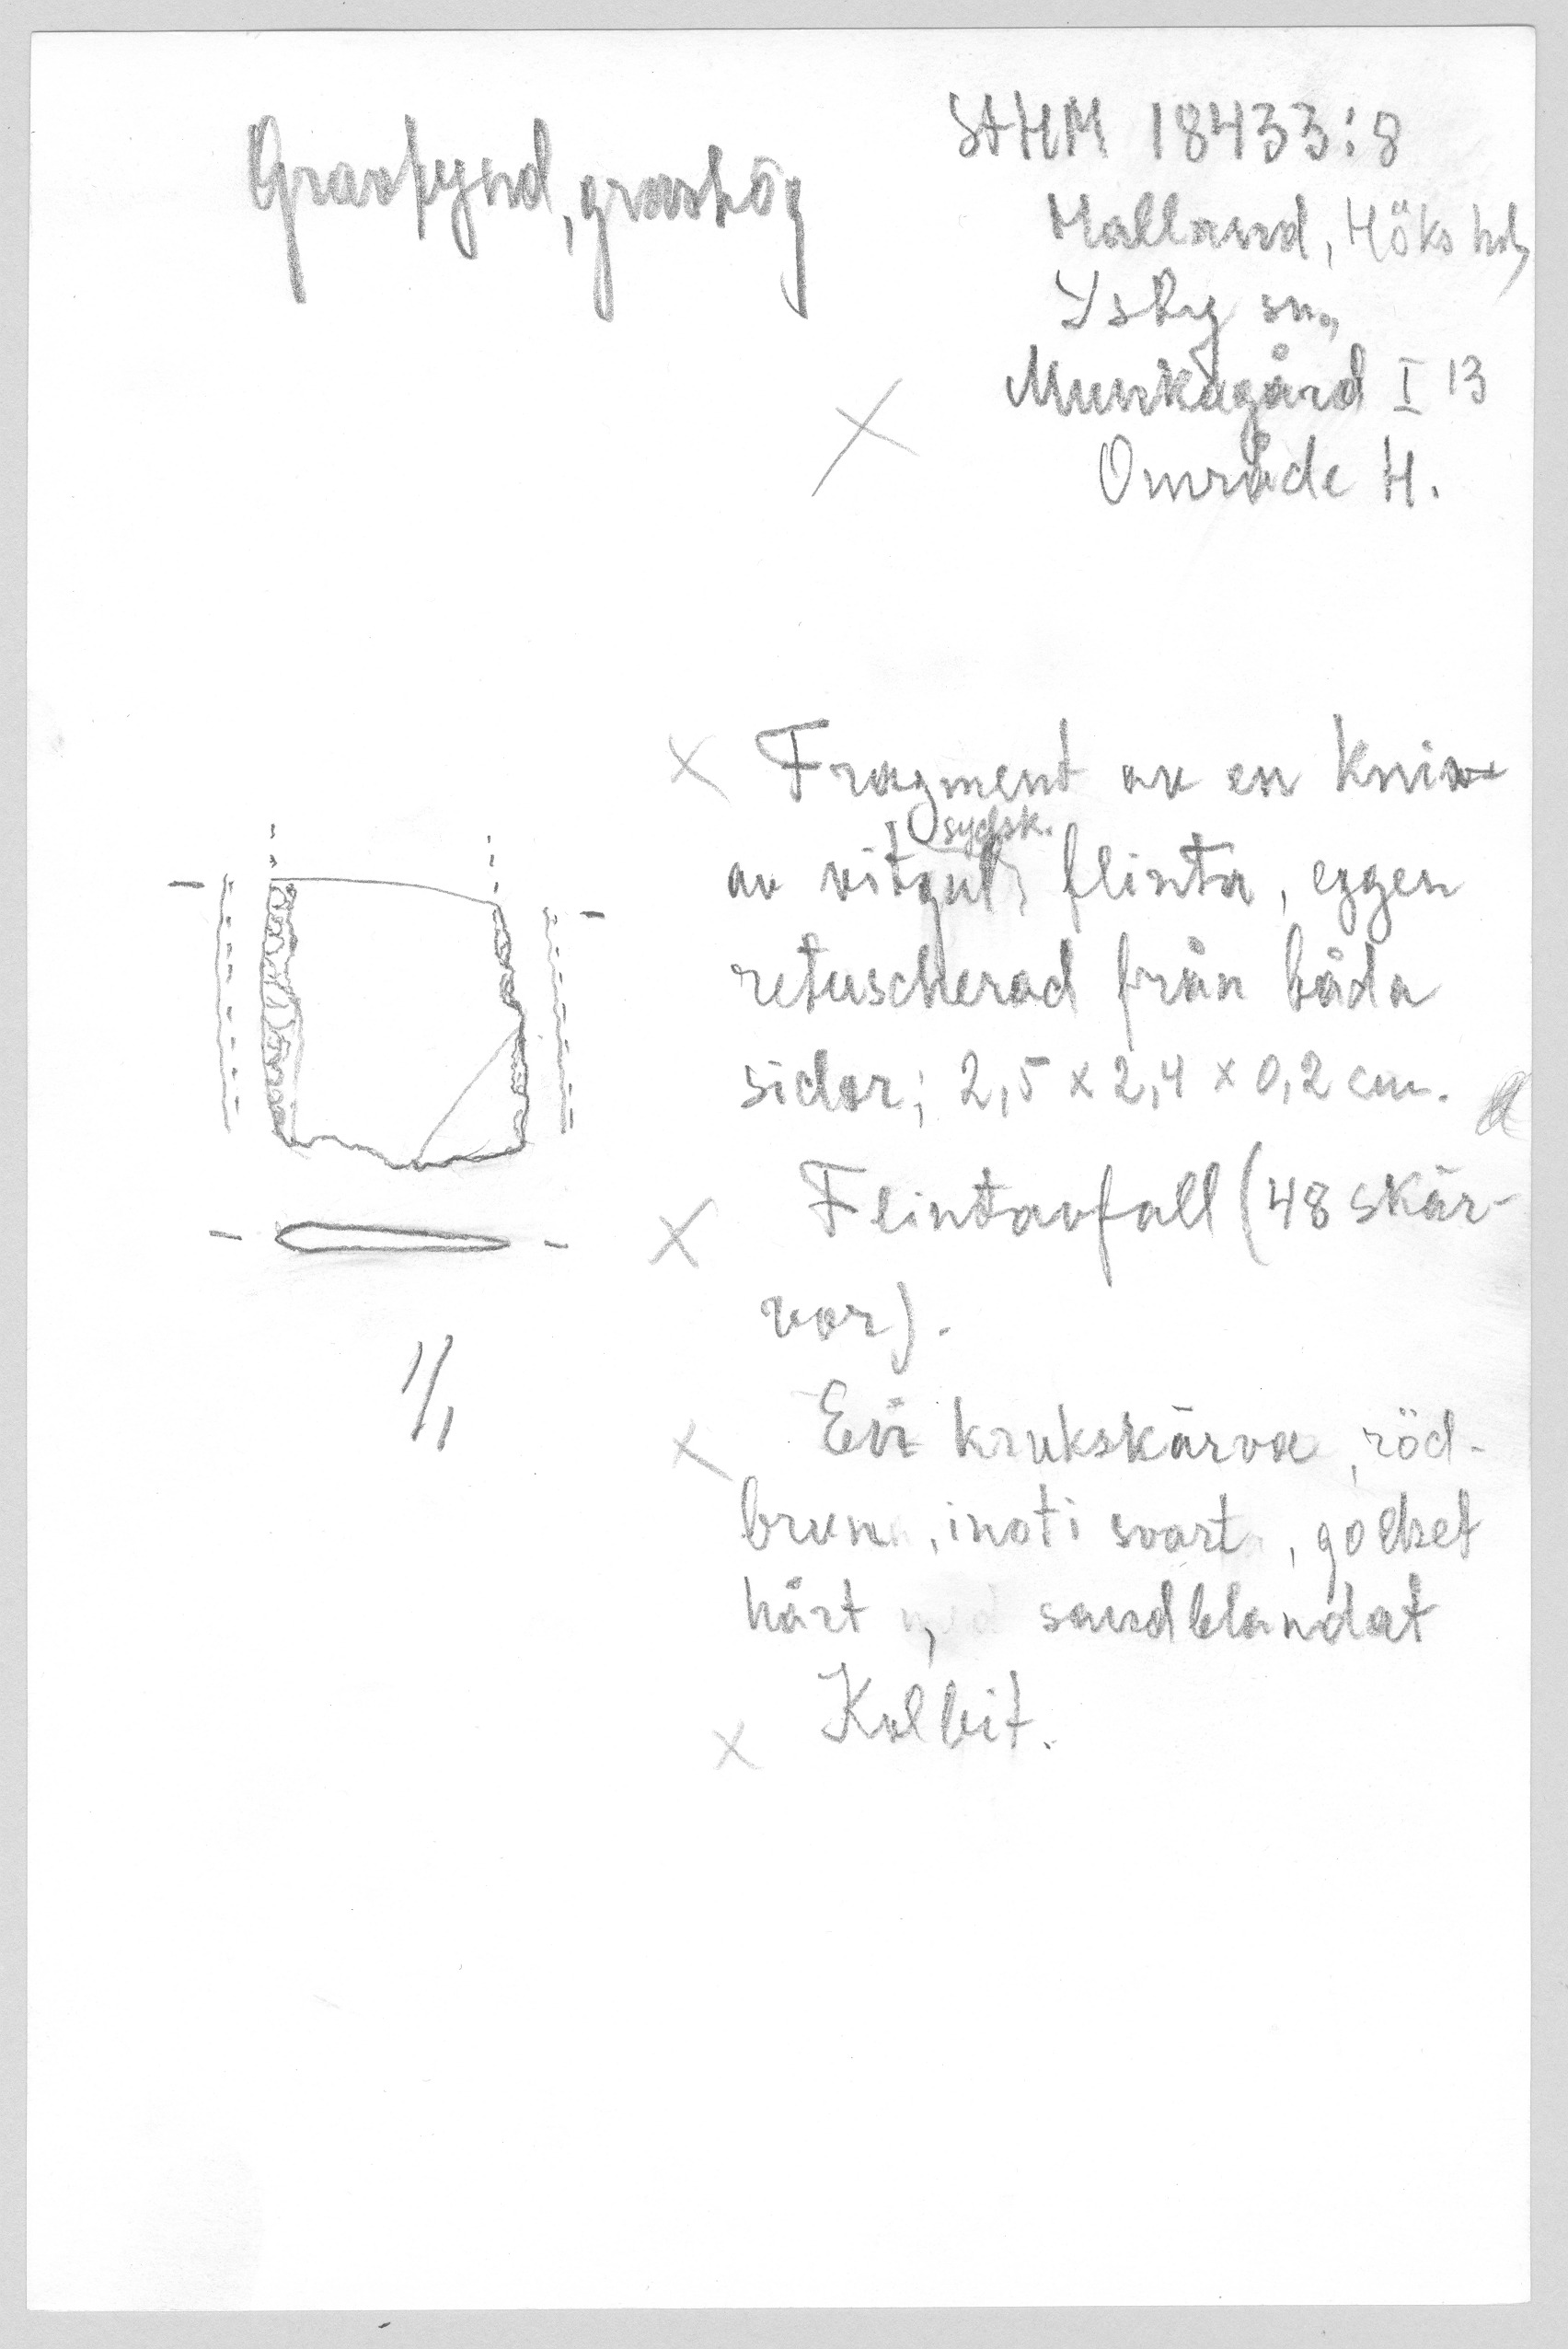 Gravfynd, gravhög
SHM 18433:8
Halland, Höks hd,
Ysby sn,
Munkagård I 13
Område H.
Fragment av en kniv
sydsk.
av vitgul flinta, eggen
retuscherad från båda
sidor; 2,5 x 2,4 x 0,2 cm.
Flintavfall (48 skär-
vor).
En krukskärva, röd-
brun, inoti svart, godset
hårt, sandblandat
Kolbit.
1/1